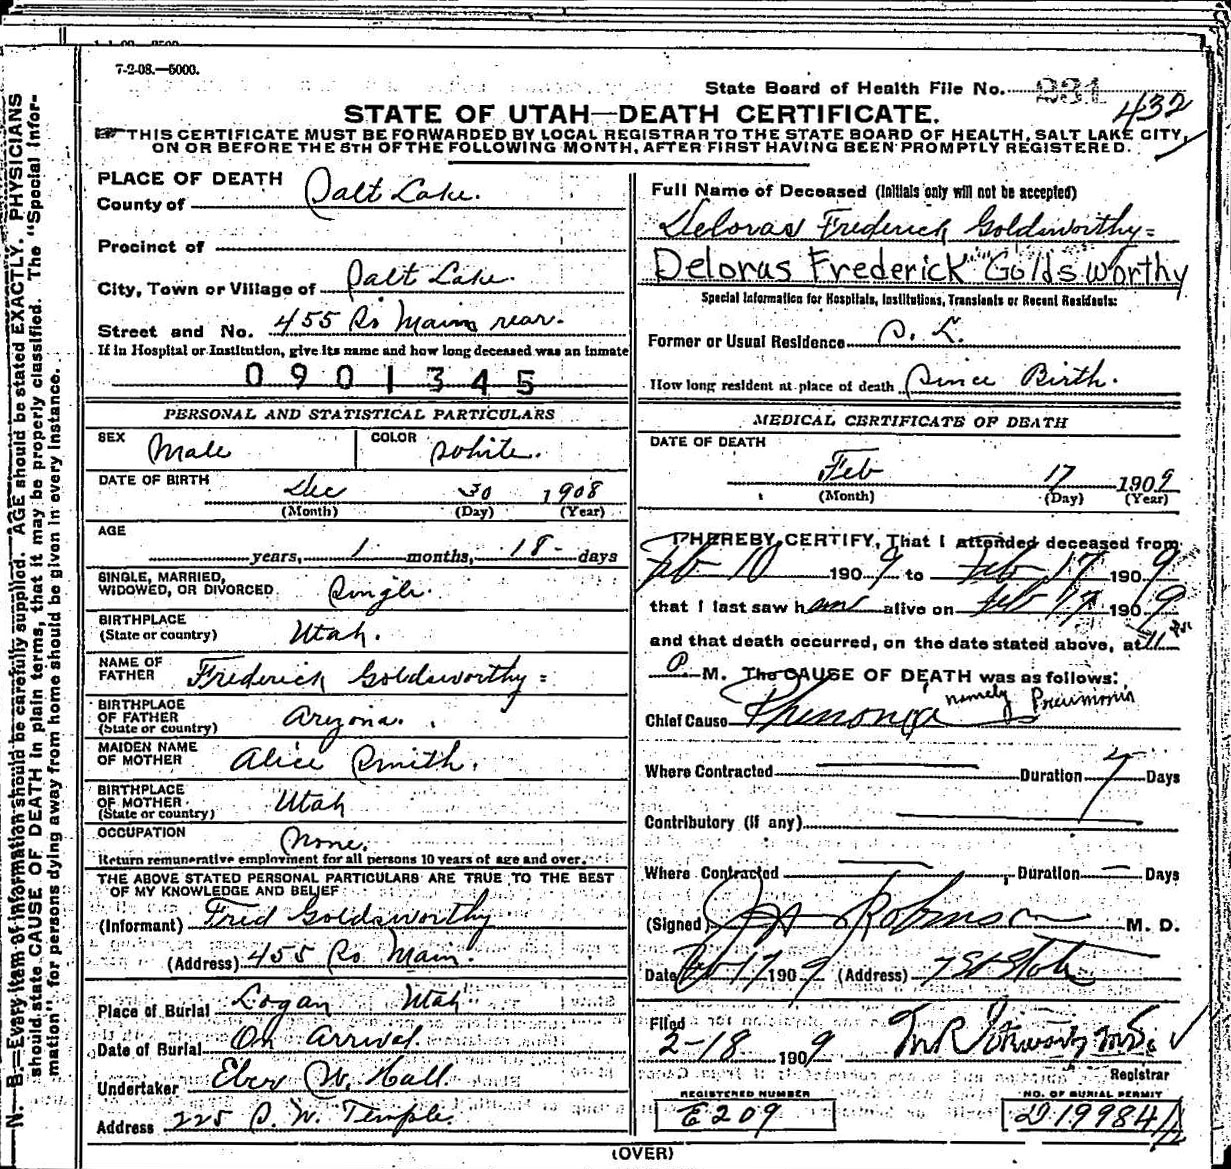 7-2-08.—5000.
State Board of Health File No. 231
432
STATE OF UTAH—DEATH CERTIFICATE.
THIS CERTIFICATE MUST BE FORWARDED BY LOCAL REGISTRAR TO THE STATE BOARD OF HEALTH, SALT LAKE CITY,
ON OR BEFORE THE 5TH OF THE FOLLOWING MONTH, AFTER FIRST HAVING BEEN PROMPTLY REGISTERED.
N. B.—Every item of information should be carefully supplied. AGE should be stated EXACTLY. PHYSICIANS
should state CAUSE OF DEATH in plain terms, that it may be properly classified. The "Special Infor-
mation" for persons dying away from home should be given in every instance.
PLACE OF DEATH
County of Salt Lake.
Precinct of
City, Town or Village of Salt Lake.
Street and No. 455 So Main rear.
If in Hospital or Institution, give its name and how long deceased was an inmate
0901345
PERSONAL AND STATISTICAL PARTICULARS
SEX Male COLOR White.
DATE OF BIRTH Dec 30 1908
(Month) (Day) (Year)
AGE
years, 1 months, 18 days
SINGLE, MARRIED,
WIDOWED, OR DIVORCED Single.
BIRTHPLACE
(State or country) Utah.
NAME OF
FATHER Frederick Goldsworthy
BIRTHPLACE
OF FATHER
(State or country) Arizona.
MAIDEN NAME
OF MOTHER Alice Smith.
BIRTHPLACE
OF MOTHER
(State or country) Utah
OCCUPATION None.
Return remunerative employment for all persons 10 years of age and over.
THE ABOVE STATED PERSONAL PARTICULARS ARE TRUE TO THE BEST
OF MY KNOWLEDGE AND BELIEF
(Informant) Fred Goldsworthy
(Address) 455 So Main.
Place of Burial Logan Utah
Date of Burial On Arrival
Undertaker Eber W. Hall
Address 225 S. W. Temple.
Full Name of Deceased (Initials only will not be accepted)
Deloras Frederick Goldsworthy
Deloras Frederick Goldsworthy
Special Information for Hospitals, Institutions, Transients or Recent Residents:
Former or Usual Residence S. L.
How long resident at place of death Since Birth.
MEDICAL CERTIFICATE OF DEATH
DATE OF DEATH
Feb 17 1909
(Month) (Day) (Year)
I HEREBY CERTIFY, That I attended deceased from
Feb 10 1909 to Feb 17 1909
that I last saw him alive on Feb 17 1909
and that death occurred, on the date stated above, at 11
P. M. The CAUSE OF DEATH was as follows:
namely Pneumonia
Chief Cause
Where Contracted Duration 7 Days
Contributory (if any)
Where Contracted Duration Days
(Signed) J H Robinson M. D.
Date Feb 17 1909 (Address)
Filed
2-18 1909
Registrar
REGISTERED NUMBER
E209
NO. OF BURIAL PERMIT
D19984 1/2
(OVER)